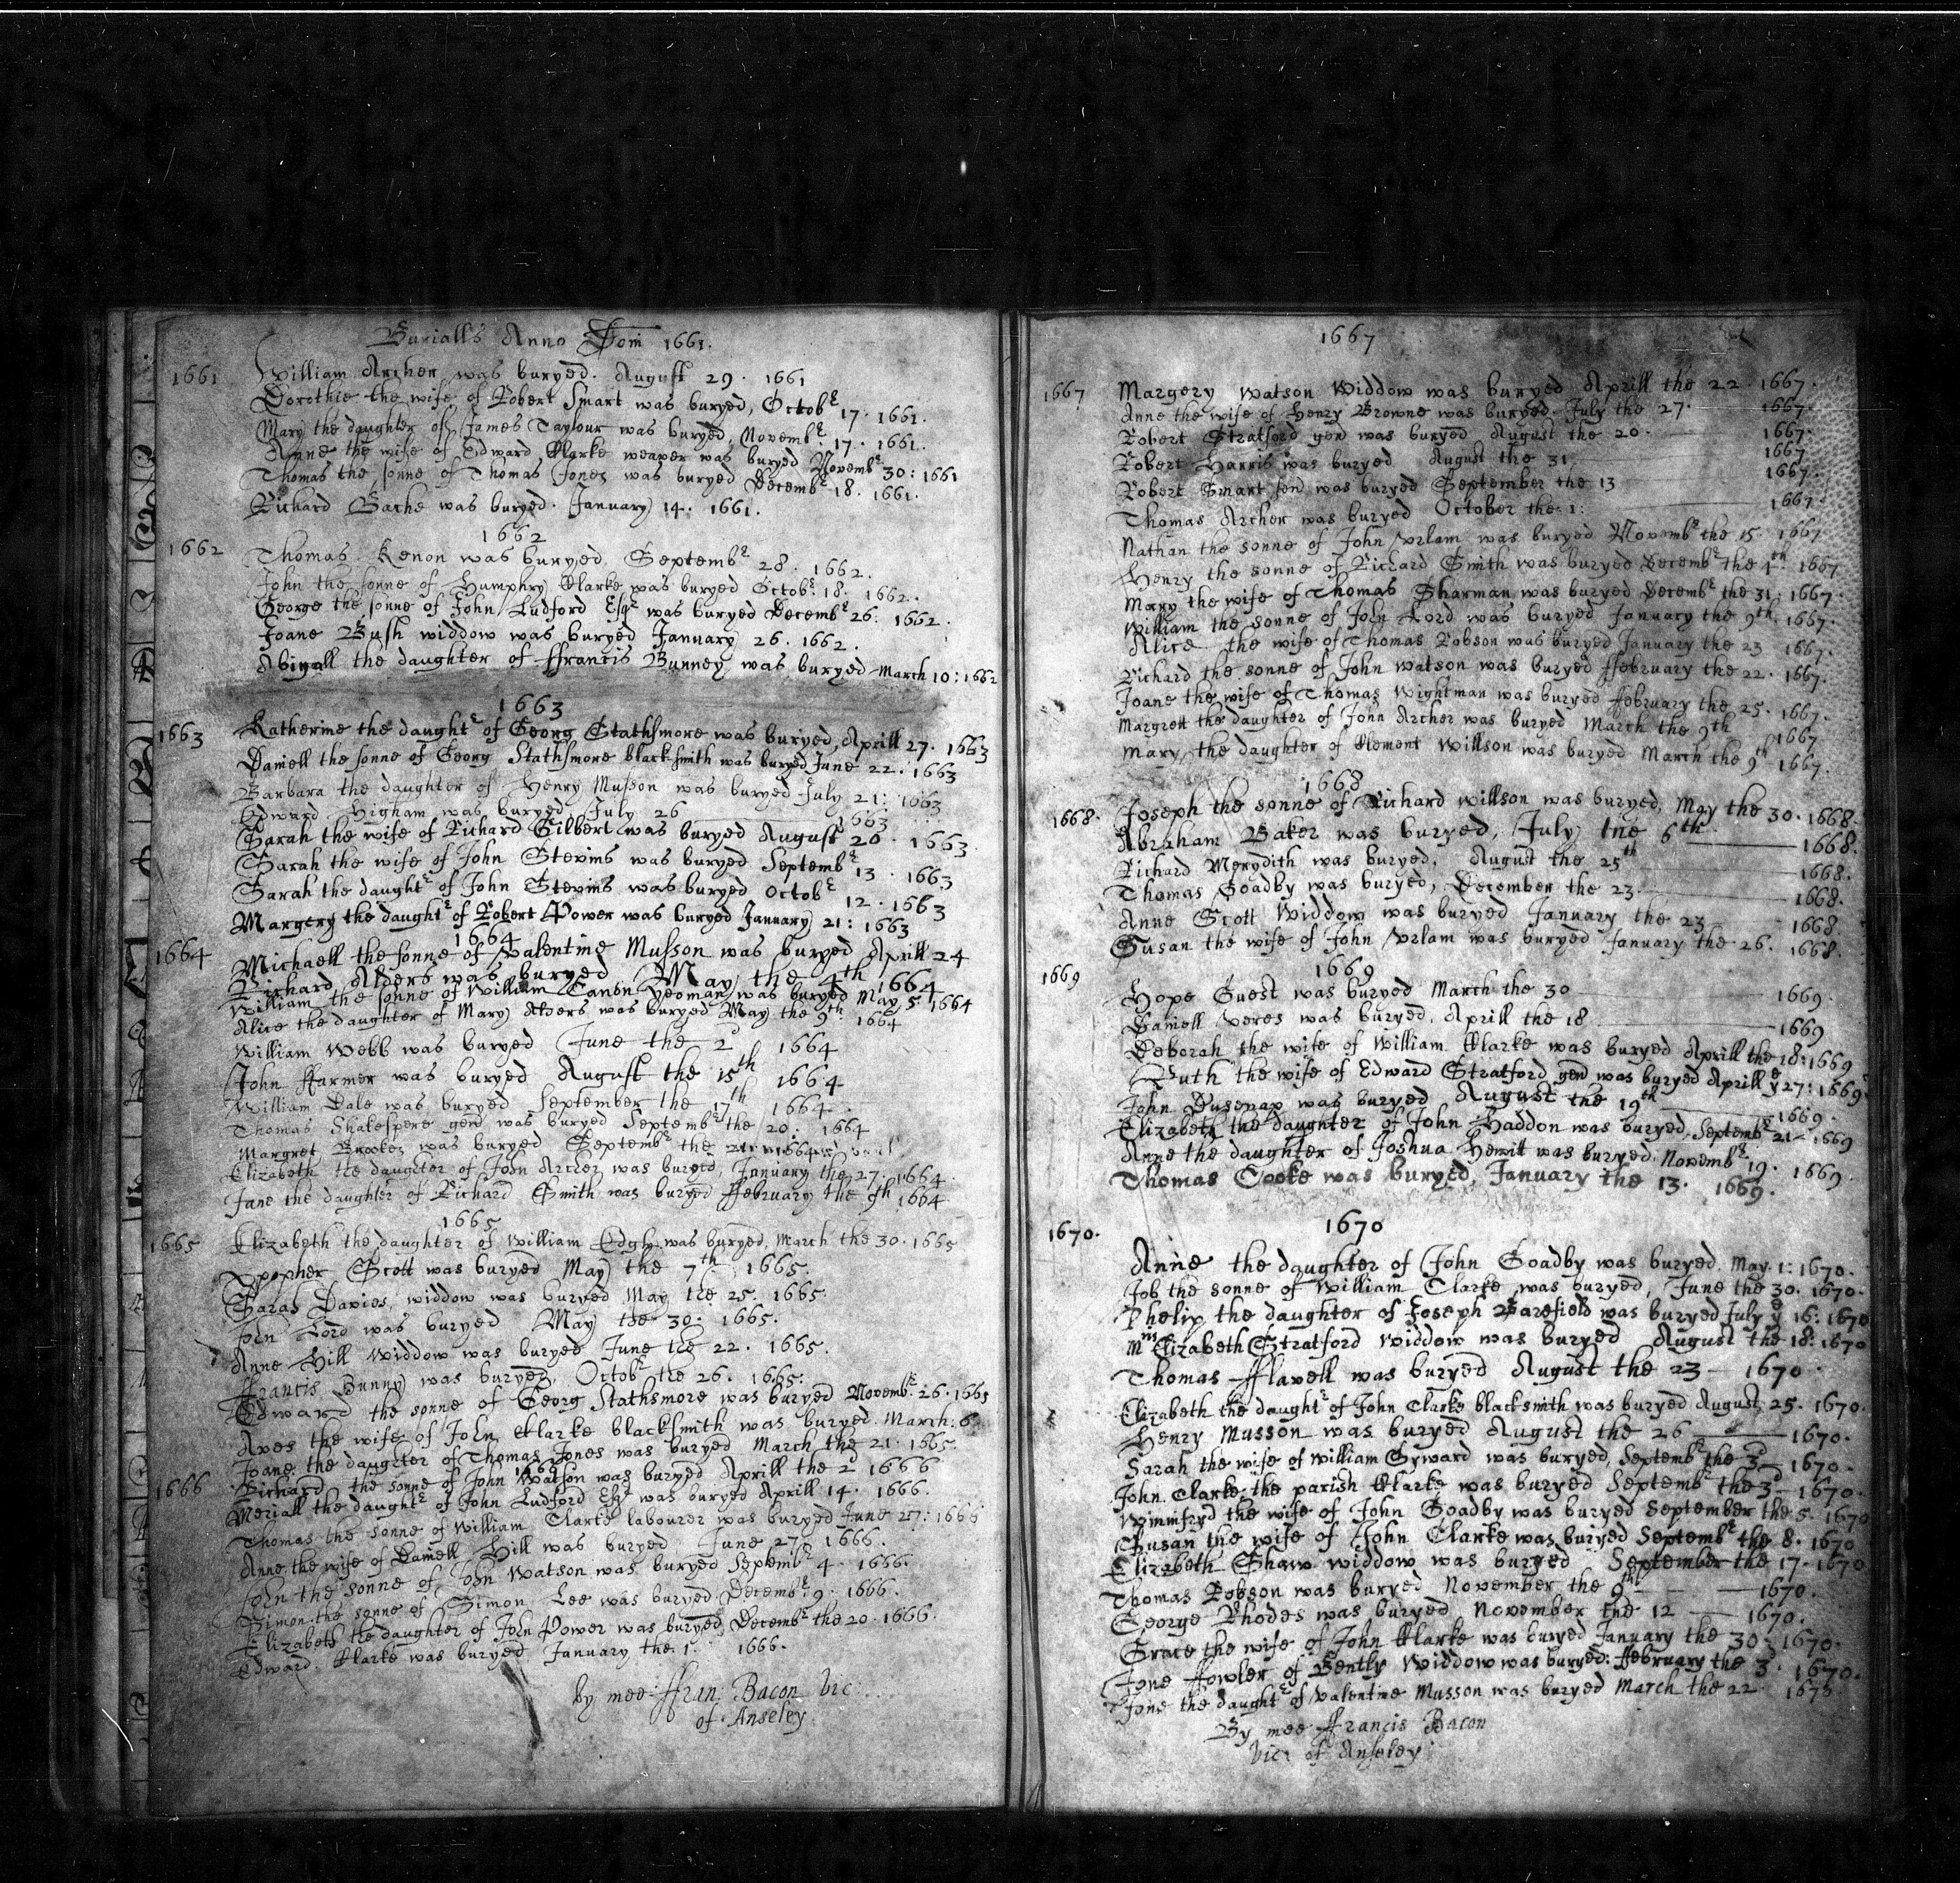 Burialls Anno Dom 1661.
1661 William Archer was buryed. August 29. 1661
Dorothie the wife of Robert Smart was buryed, Octobr 17. 1661.
Mary the daughter of James Taylour was buryed, Novembr 17. 1661.
Anne the wife of Edward Clarke weaver was buryed Novembr 30: 1661
Thomas the sonne of Thomas Jones was buryed Decembr 18. 1661.
Richard Bache was buryed. January 14. 1661.
1662
1662 Thomas Kenon was buryed Septembr 28. 1662.
John the sonne of Humphry Clarke was buryed Octobr 18. 1662.
George the sonne of John Ludford Esqr was buryed Decembr 26. 1662.
Joane Bush widdow was buryed January 26. 1662.
Abigall the daughter of ffrancis Bunney was buryed March 10: 1662
1663
1663 Katherine the daughtr of Georg Stathsmore was buryed, Aprill 27. 1663
Daniell the sonne of Georg Stathsmore blacksmith was buryed June 22. 1663
Barbara the daughter of Henry Musson was buryed July 21: 1663
Edward Higham was buryed July 26 1663
Sarah the wife of Richard Gilbert was buryed August 20. 1663.
Sarah the wife of John Stevins was buryed Septembr 13. 1663
Sarah the daughtr of John Stevins was buryed Octobr 12. 1663
Margery the daughtr of Robert Power was buryed January 21: 1663
1664
1664 Michaell the sonne of Valentine Musson was buryed Aprill 24
Richard Alders was buryed May the 4th 1664
William the sonne of William Yeoman was buryed May 5 1664
Alice the daughter of Mary Alders was buryed May the 9th 1664
William Webb was buryed June the 2d 1664
John ffarmer was buryed August the 15th 1664
William Dale was buryed September the 17th 1664.
Thomas Shakespere gend was buryed Septembr the 20. 1664
Margret Brookes was buryed Septembr the
Elizabeth the daughter of John Archer was buryed, January the 27. 1664.
Jane the daughter of Richard Smith was buryed ffebruary the 9th 1664
1665
1665 Elizabeth the daughter of William was buryed, March the 30. 1665
Xpopher Scott was buryed May the 7th 1665.
Sarah Davies widdow was buryed May the 25. 1665.
John Lord was buryed May the 30: 1665.
Anne Hill Widdow was buryed June the 22. 1665.
ffrancis Bunny was buryed, Octobr the 26. 1665.
Edward the sonne of Georg Stathsmore was buryed Novembr 26. 1665
Aves the wife of John Clarke blacksmith was buryed. March. 6.
Joane the daughter of Thomas Jones was buryed March the 21. 1665.
1666
1666 Richard the sonne of John Watson was buryed Aprill the 2d 1666
Meriall the daughtr of John Ludford Esqr was buryed Aprill 14. 1666.
Thomas the sonne of William Clarke labourer was buryed June 27: 1666
Anne the wife of Daniell Hill was buryed June 27. 1666.
John the sonne of John Watson was buryed Septembr 4. 1666.
Simon the sonne of Simon Lee was buryed Decembr 9. 1666.
Elizabeth the daughter of John Power was buryed Decembr the 20. 1666.
Edward Clarke was buryed January the 1 1666.
by mee ffran: Bacon Vic:
of Anseley
1667
1667 Margery Watson Widdow was buryed Aprill the 22. 1667.
Anne the wife of Henry Browne was buryed. July the 27. 1667.
Robert Stratford gend was buryed August the 20. 1667.
Robert Harris was buryed August the 31 1667
Robert Smart send was buryed September the 13 1667.
Thomas Archer was buryed October the 1: 1667.
Nathan the sonne of John Vrlam was buryed Novembr the 15. 1667
Henry the sonne of Richard Smith was buryed Decembr the 1th: 1667
Mary the wife of Thomas Sharman was buryed Decembr the 31: 1667.
William the sonne of John Lord was buryed January the 9th. 1667.
Alice the wife of Thomas Robson was buryed January the 23 1667.
Richard the sonne of John Watson was buryed ffebruary the 22. 1667.
Joane the wife of Thomas Wightman was buryed ffebruary the 25. 1667.
Margrett the daughter of John Archer was buryed March the 9th 1667
Mary the daughter of Clement Willson was buryed March the 9th 1667.
1668
1668. Joseph the sonne of Richard Willson was buryed, May the 30. 1668.
Abraham Baker was buryed, July the 6th 1668.
Richard Merydith was buryed. August the 25th 1668.
Thomas Goadby was buryed, December the 23. 1668.
Anne Scott Widdow was buryed January the 23 1668.
Susan the wife of John Vrlam was buryed January the 26. 1668.
1669
1669 Hope Guest was buryed March the 30 1669.
Daniell Veres was buryed. Aprill the 18 1669
Deborah the wife of William Clarke was buryed Aprill the 18: 1669
Ruth the wife of Edward Stratford gend was buryed Aprill ye 27: 1669
John was buryed August the 19th 1669.
Elizabeth the daughter of John Haddon was buryed, Septembr 21 1669
Anne the daughter of Joshua Hewitt was buryed, Novembr 19. 1669.
Thomas Cooke was buryed, January the 13. 1669.
1670
1670. Anne the daughter of John Goadby was buryed. May 1: 1670.
Job the sonne of William Clarke was buryed, June the 30. 1670.
Phelip the daughter of Joseph Barefield was buryed July ye 16: 1670
Mris Elizabeth Stratford Widdow was buryed August the 18: 1670
Thomas fflavell was buryed August the 23 1670
Elizabeth the daughtr of John Clarke blacksmith was buryed August 25. 1670.
Henry Musson was buryed August the 26 1670.
Sarah the wife of William Syward was buryed, Septembr the 3d 1670.
John Clarke the parish Clarke was buryed Septembr the 3d 1670.
Winnifryd the wife of John Goadby was buryed September the 5. 1670
Susan the wife of John Clarke was buryed Septembr the 8. 1670
Elizabeth Shaw widdow was buryed September the 17. 1670
Thomas Robson was buryed November the 9th 1670.
George Rhodes was buryed November the 12 1670.
Grace the wife of John Clarke was buryed January the 30. 1670.
Jone ffowler of Bently Widdow was buryed: ffebruary the 3d 1670.
Jone the daughtr of Valentine Musson was buryed March the 22
By mee ffrancis Bacon
Vicr of Anseley